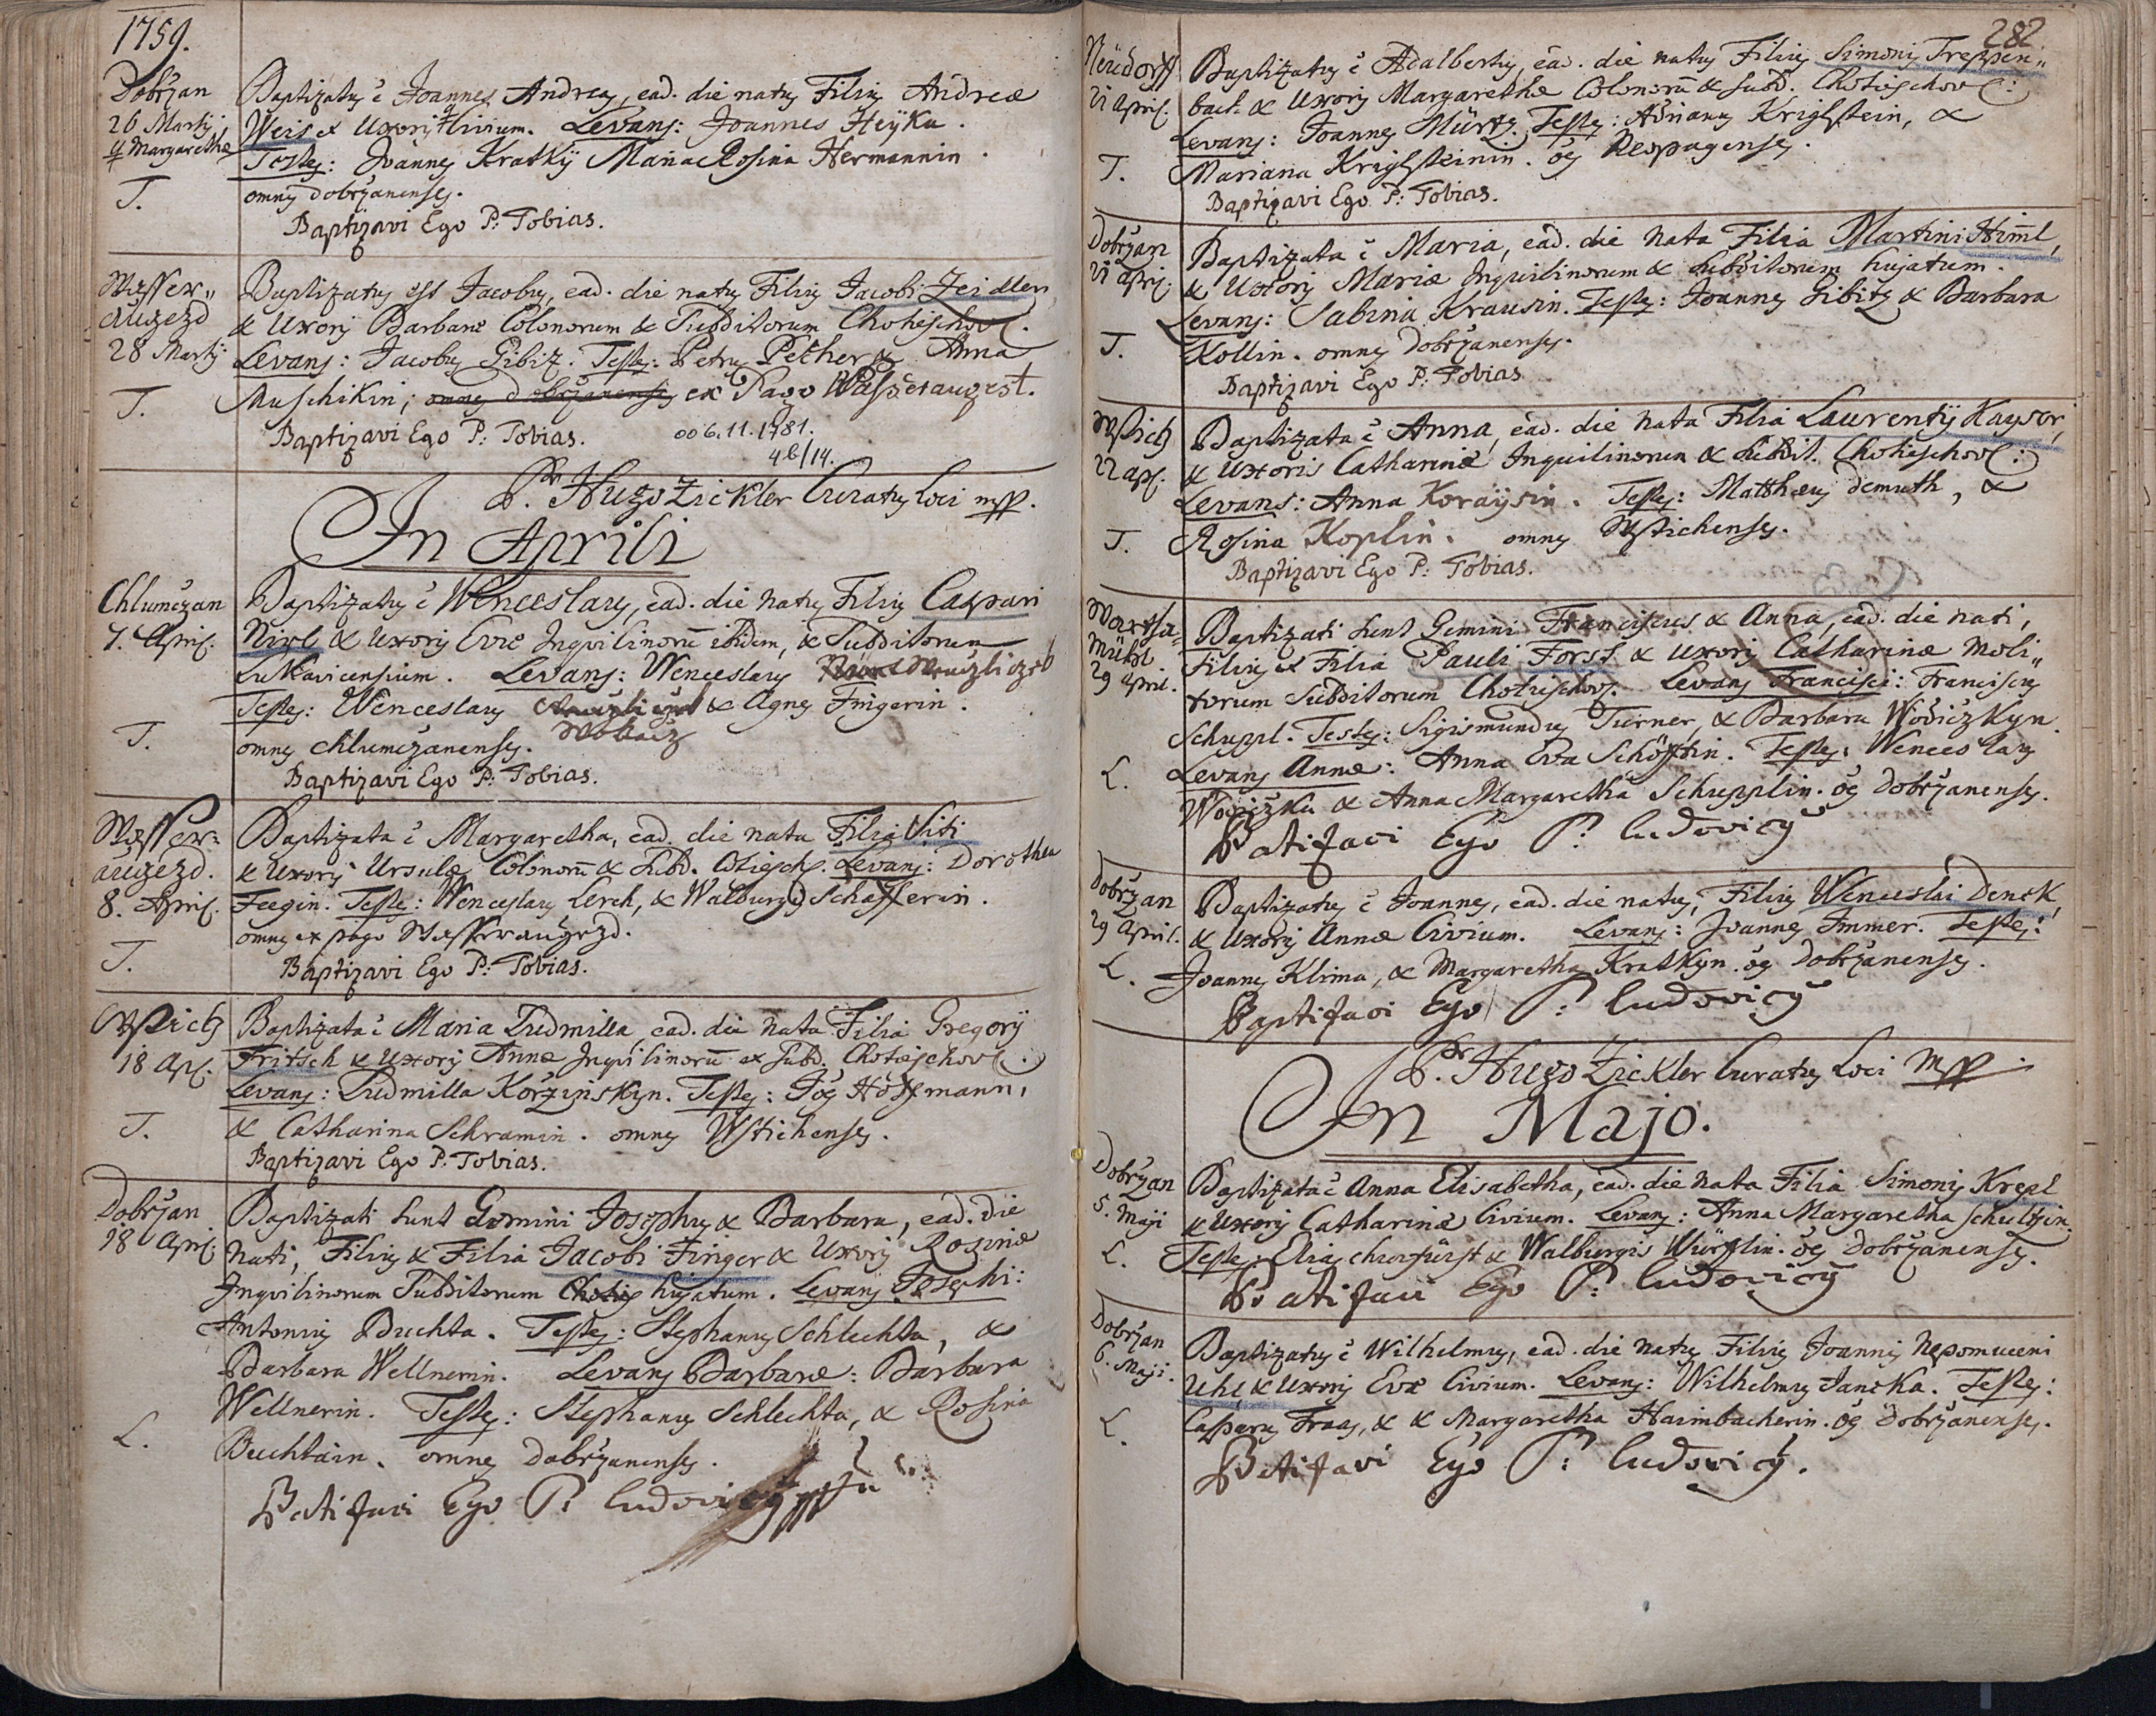 1759.
Dobrzan
26 Martij
# Margarethæ
T.
Baptizatus ē Joannes Andreas, ead. die natus Filius Andreæ
Weis et Uxoris # Civium. Levans: Joannes Heÿka.
Testes: Joannes Kratkÿ Maria Rosina Hermannin.
omnes dobrzanenses.
Baptizavi Ego P: Tobias.
Wasser„
augezd
28 Martij
T.
Baptizatus est Jacobus, ead. die natus Filius Jacobi Zeidler
& Uxoris Barbaræ Colonorum & Subditorum Chotieschov.
Levans: Jacobus Gibiz. Testes: Petrus Pecher & Anna
Muschikin; omnes dobrzanenses ex Pago Wasseraugezt.
Baptizavi Ego P: Tobias. oo 6.11.1781.
4b/14.
P. Hugo Zickler Curatus loci mpp.
In Aprili
Chlumczan
7. April.
T.
Baptizatus ē Wenceslaus, ead. die natus Filius Caspari
Nirl & Uxoris Evæ Inquilinorū ibidem, & Subditorum
Lukavicensium. Levans: Wenceslaus
Testes: Wenceslaus & Agnes Fingerin.
omnes chlumczanenses.
Baptizavi Ego P: Tobias.
Wasser=
augezd.
8. April.
T.
Baptizata ē Margaretha, ead. die nata Filia Viti
& Uxoris Ursulæ Colonorū & Subd. Cotiesch. Levans: Dorothea
Feegin. Testes: Wenceslaus Lerch, & Walburgis Schafferin.
omnes ex pago Wasseraugezd.
Baptizavi Ego P: Tobias.
Wstich
18 Apr.
T.
Baptizata ē Maria Ludmilla, ead. die nata Filia Gregorÿ
Fritsch & Uxoris Annæ Inquilinorū ex Subd. Chotieschov.
Levans: Ludmilla Korzinskyn. Testes: Jōs Hoffmann,
& Catharina Schramin. omnes Wstichenses.
Baptizavi Ego P: Tobias.
Dobrzan
18 Apr.
L.
Baptizati sunt Gemini Josephus & Barbara, ead. die
nati, Filius & Filia Jacobi Finger & Uxoris Rosinæ
Inquilinorum Subditorum hujatum. Levans Josephi:
Antonius Buchta. Testes: Stephanus Schlechta, &
Barbara Wellnerin. Levans Barbaræ: Barbara
Wellnerin. Testes: Stephanus Schlechta, & Rosina
Buchtain. omnes Dobrzanenses.
Batisavi Ego P: ludovicus
282.
Neudorff
21 April.
T.
Baptizatus ē Adalbertus, ead. die natus Filius Simonis Treppen„
bach & Uxoris Margarethæ Colonorū & subd. Chotieschov:
Levans: Joannes Mürtz. Testes: Adrianus Kriglstein, &
Mariana Kriglsteinin. oēs Neopagenses.
Baptizavi Ego P: Tobias.
Dobrzan
21 April.
T.
Baptizata ē Maria, ead. die nata Filia Martini Him̄l,
& Uxoris Mariæ Inquilinorum & Subditorum hujatum.
Levans: Sabina Krausin. Testes: Joannes Gibitz & Barbara
Kollin. omnes Dobrzanenses.
Baptizavi Ego P: Tobias
Wstich
22 apr.
T.
Baptizata ē Anna, ead. die nata Filia Laurentÿ Kayser,
& Uxoris Catharinæ Inquilinorum & Subdit. Chotieschov:
Levans: Anna Koraÿsin. Testes: Matthæus Demuth, &
Rosina Koplin. omnes Wstichenses.
Baptizavi Ego P: Tobias.
Wartha=
Mühl.
29 April.
L.
Baptizati sunt Gemini Franciscus & Anna, ead. die nati,
Filius et Filia Pauli Forst & Uxoris Catharinæ Moli„
torum Subditorum Chotieschov. Levans Francisci: Franciscus
Schuppl. Testes: Sigismundus Turner, & Barbara Wodiczkyn.
Levans Annæ: Anna Eva Schöfftin. Testes: Wenceslaus
Wodiczka & Anna Margaretha Schupplin. oēs Dobrzanenses.
Batisavi Ego P: ludovicus
Dobrzan
29 April.
L.
Baptizatus ē Joannes, ead. die natus, Filius Wenceslai Denck,
& Uxoris Annæ Civium. Levans: Joannes Immer. Testes:
Joannes Klima, & Margaretha Kratkyn. oēs Dobrzanenses.
Baptisavi Ego P: ludovicus
P. Hugo Zickler Curatus Loci mpp.
In Majo.
Dobrzan
5. Maji
L.
Baptizata ē Anna Elisabetha, ead. die nata Filia Simonis Krepl
& Uxoris Catharinæ Civium. Levans: Anna Margaretha Schultzin.
Testes: Elias & Walburgis Würfflin. oēs Dobrzanenses.
Batisavi Ego P: ludovicus
Dobrzan
6. Maji.
L.
Baptizatus ē Wilhelmus, ead. die natus Filius Joannis Nepomuceni
Uhl & Uxoris Evæ Civium. Levans: Wilhelmus Janeka. Testes:
Casparus Fraas, & & Margaretha Haimbacherin. oēs Dobrzanenses.
Batisavi Ego P: ludovicus.